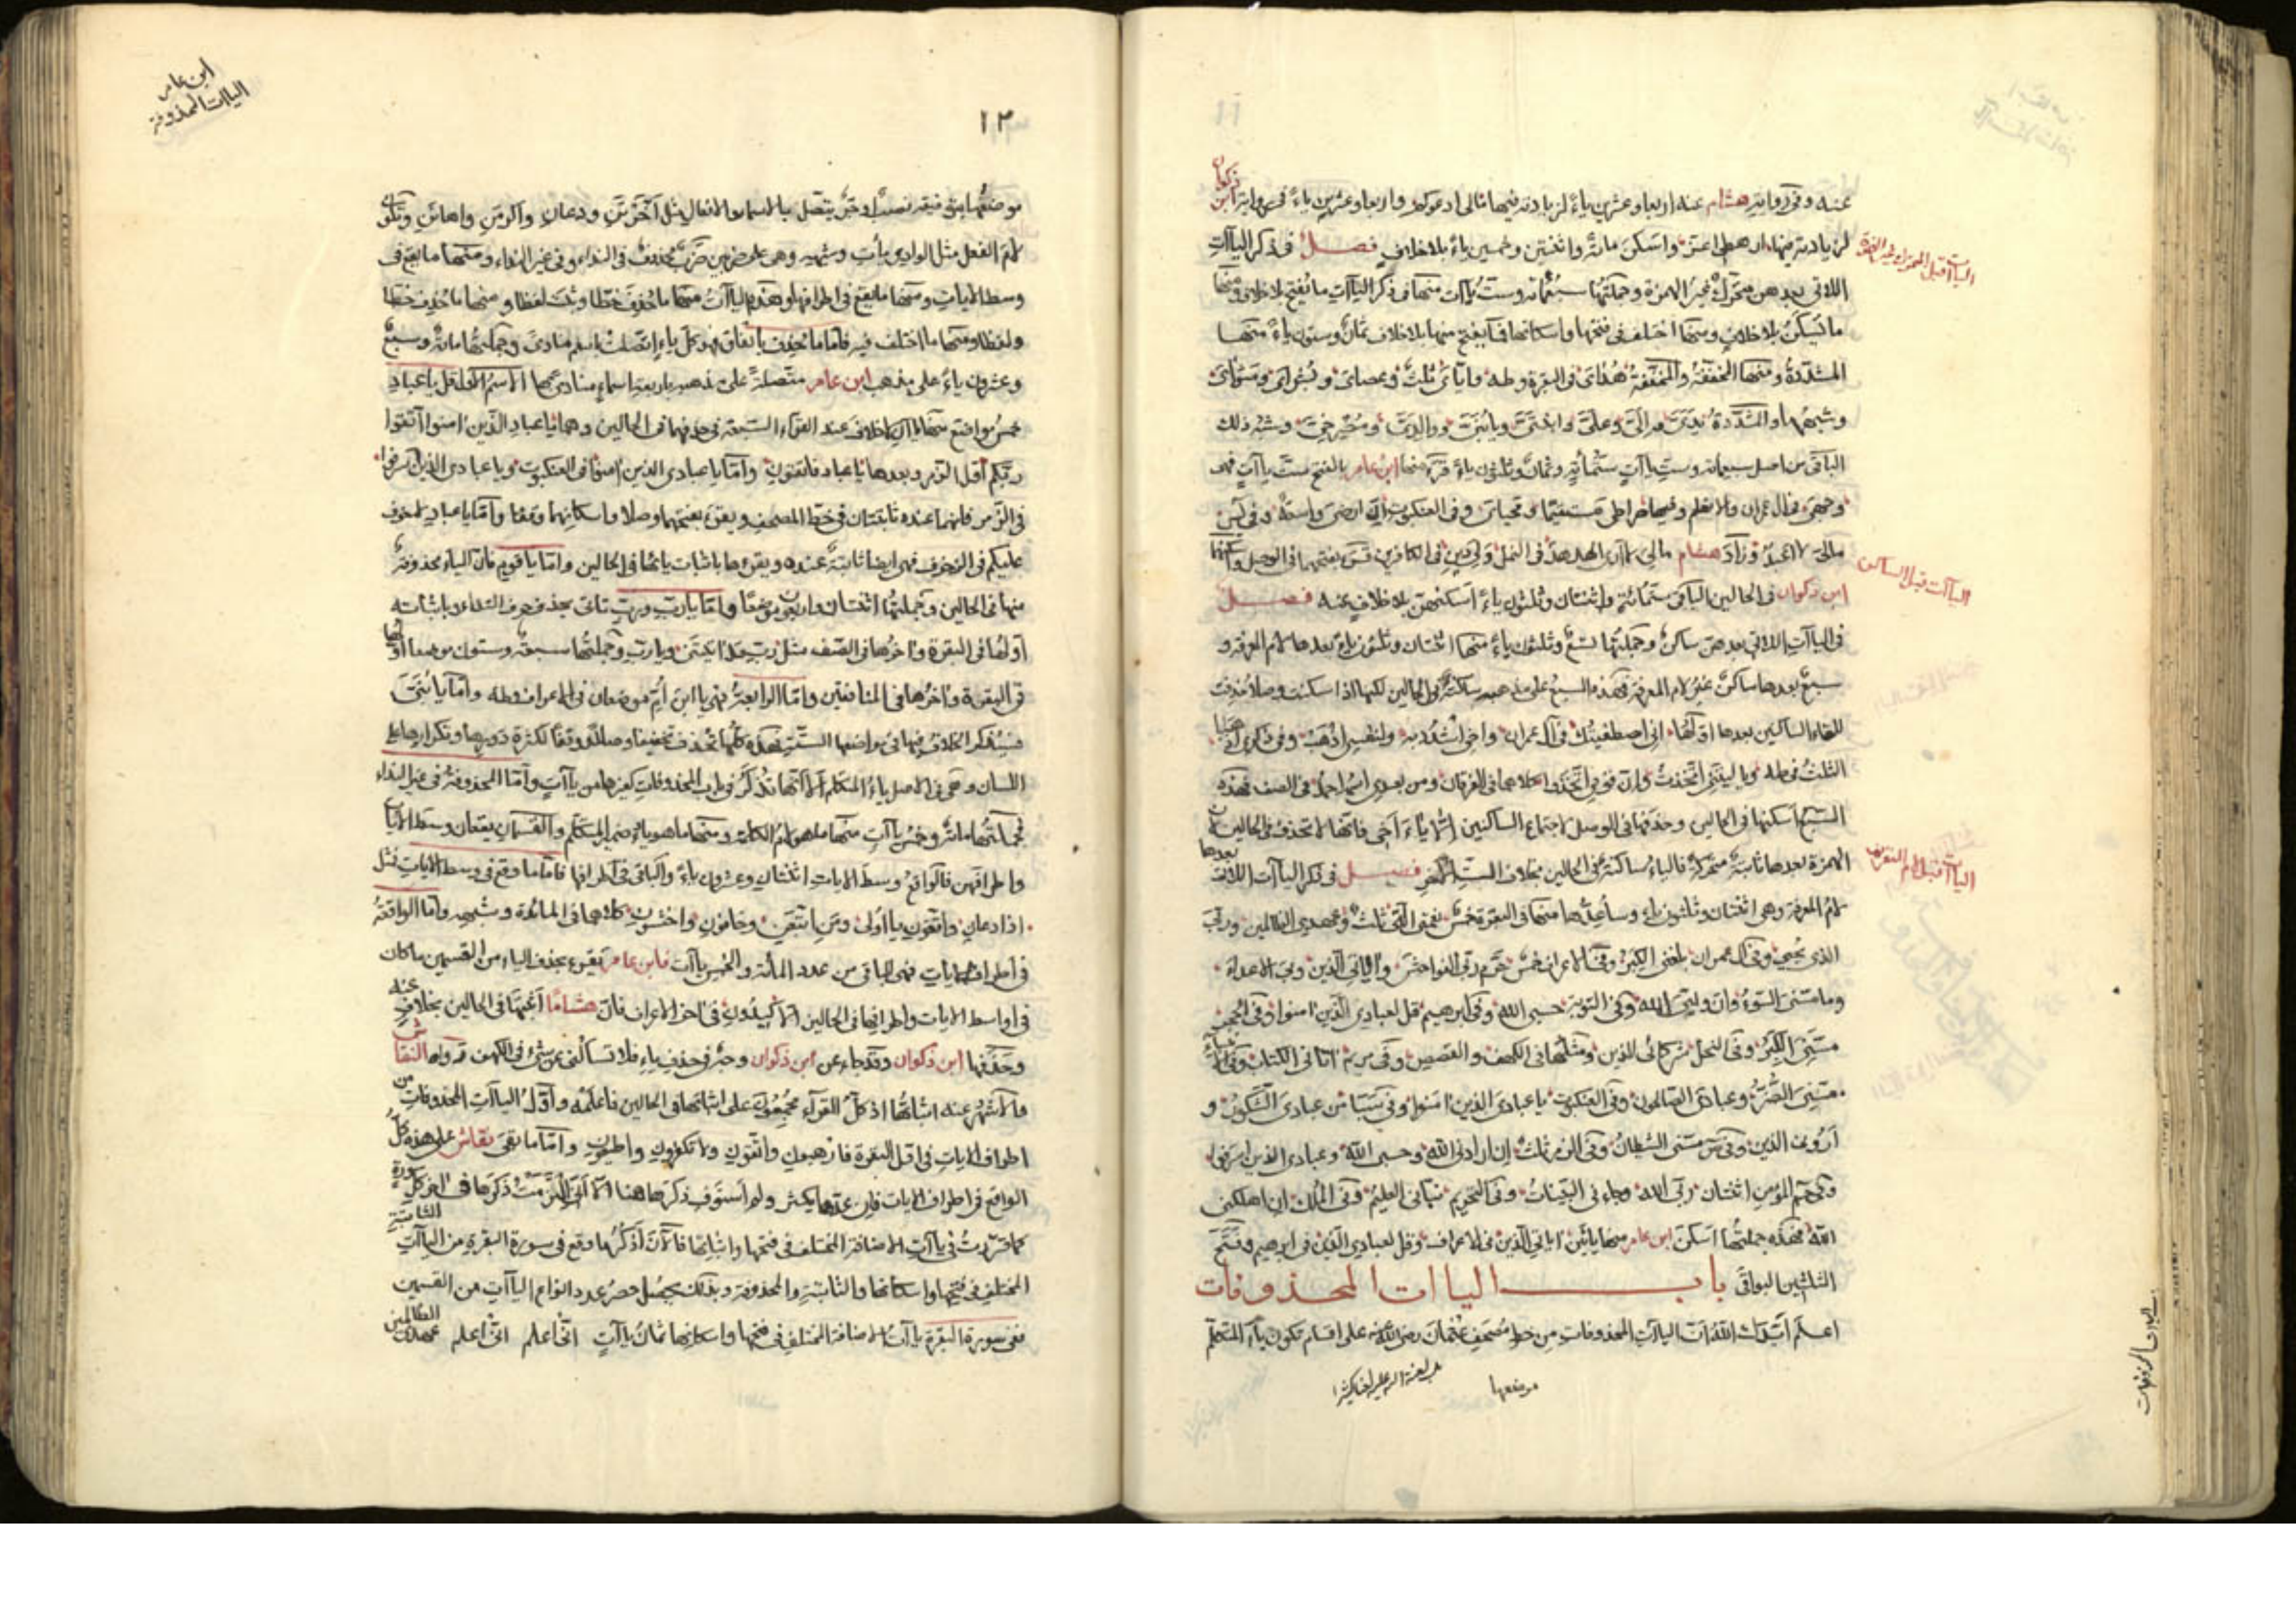 عنه وفى رواية هشام عنه اربعا وعشرين ياءً لزيادته فيها مالى ادعوكم واربعا وعشرين ياءً فى رواية ابن ذكوان
لزيادته فيها ارهطى اعز واسكن مائة واثنتين وخمسين ياءً بلا خلاف فصل فى ذكر اليآات
اللاتى بعدهن متحرك غير الهمزة وجملتها سبعمائة وست يآات منها فى ذكر اليآات ما يفتح بلا خلاف ومنها
ما يسكن بلا خلاف ومنها اختلف فى فتحها واسكانها فما يفتح منها بلا خلاف ثمان وستون ياءً منها
المشددة ومنها المخففة والمخففة هداى فى البقرة وطه واياى ثلث وعصاى وبشراى ومثواى
وشبهها والمشددة يدى والى وعلى وابنتى ويا بنى ووالدى ومصرخى وشبه ذلك
الباقى من اصل سبعمائة وست ياآت ستمائة وثمان وثلثون ياءً قرء منها ابن عامر بالفتح ست ياآت فهى
وجهى فى ال عمران والانعام وفيها صراطى مستقيما ومحياى وفى العنكبوت ان ارضى واسعة وفى يس
مالى لا اعبد وزاد هشام مالى لا ارى الهدهد فى النمل ولى دين فى الكافرين فتح بفتحهما فى الوصل واسكنهما
ابن ذكوان فى الحالين الباقى ستمائة واثنتان وثلثون ياءً اسكنهن بلا خلاف عنه فصل
فى الياآت اللاتى بعدهن ساكن وجملتها تسع وثلثون ياءً منها اثنتان وثلثون ياء بعدها لام المعرفة و
سبع بعدها ساكن غير لام المعرفة فهذه السبع على مذهبه ساكنة فى الحالين لكنها اذا سكنت وصلا حذفت
للقاء الساكنين بعدها اولها انى اصطفيتك فى آل عمران واخى اشدد به ولنفسى اذهب وفى ذكرى اذهبا
الثلث فى طه ويا ليتنى اتخذت وان قومى اتخذوا كلاهما فى الفرقان ومن بعدى اسمه احمد فى الصف فهذه
السبع اسكنها فى الحالين وحذفها فى الوصل لاجتماع الساكنين الا ياء اخى فانها لا تحذف فى الحالين لان
الهمزة بعدها ثابتة متحركة فالياء ساكنة فى الحالين بخلاف الست الأخر فصل فى ذكر الياآت اللاتى بعدها
لام المعرفة وهى اثنتان وثلثون ياء وساعدها منها فى البقرة خمس نعمتى التى ثلث وعهدى الظالمين وربى
الذى يحيى وفى آل عمران بلغنى الكبر وفى الاعراف خمس حرم ربى الفواحش واياتى الذين وبى الاعداء
وما مسنى السوء وان وليى الله وفى التوبة حسبى الله وفى ابرهيم قل لعبادى الذين امنوا وفى الحجر
مسنى الكبر وفى النحل شركائى الذين ومثلها فى الكهف والقصص وفى مريم اتانى الكتاب وفى الانبياء
مسنى الضر وعبادى الصالحون وفى العنكبوت يا عبادى الذين امنوا وفى سبا من عبادى الشكور و
ارونى الذين وفى ص مسنى الشيطان وفى الزمر ثلث ان ارادنى الله وحسبى الله وعبادى الذين اسرفوا
وفى حم المؤمن اثنتان ربى الله وجاءنى البينات وفى التحريم نبانى العليم وفى الملك ان اهلكنى
الله فهذه جملتها اسكن ابن عامر منها يائين اياتى الذين فى الاعراف وقل لعبادى الذين فى ابرهيم وفتح
الثلثين البواقى باب الياات المحذوفات
اعلم ايدك الله ان الياآت المحذوفات من خط مصحف عثمان رضى الله عنه على اقسام تكون ياء المتكلم
موضعها
اليات قبل المتحرك غير الهمزة
الياآت قبل الساكن
اليات قبل لام التعريف
ابن عامر
الياات المحذوفة
١٢
موضعها ... يتصل بالاسماء والافعال مثل اخرتن ودعان واكرمن واهانن وتكون
لام الفعل مثل الوادى يأت وشبهه وهى على ضربين ضرب محذوف فى النداء وفى غير النداء ومنها ما يقع فى
وسط الايات ومنها ما يقع فى اطرافها وهذه الياآت منها ما حذف خطا وثبت لفظا ومنها ما حذف خطا
ولفظا ومنها ما اختلف فيه فاما ما حذف باتفاق فهو كل ياء اتصلت باسم منادى وجملتها مائة وسبع
وعشرون ياءً على مذهب ابن عامر متصلة على مذهبه باربعة اسماء منادى بها الاسم الاول قل يا عباد
خمس مواضع منها ياآن لا خلاف عند القراء السبعة فى حذفهما فى الحالين وهما يا عباد الذين امنوا اتقوا
ربكم اول الزمر وبعدها يا عباد فاتقون واما يا عبادى الذين امنوا فى العنكبوت ويا عبادى الذين اسرفوا
فى الزمر فانهما عنده ثابتتان فى خط المصحف ويقرء بفتحهما وصلا واسكانهما وقفا واما يا عباد لا خوف
عليكم فى الزخرف فهى ايضا ثابتة عنده ويقرءها باثبات يائها فى الحالين واما يا قوم فان الياء محذوفة
منها فى الحالين وجملتها اثنتان واربعون موضعا واما يا رب ورب تاتى بحذف حرف النداء وباثباته
اولها فى البقرة واخرها فى الصف مثل رب ... ويا رب وجملتها سبعة وستون موضعا اولها
فى البقرة واخرها فى المنافقين واما الرابعة فهى يا ابن ام موضعان فى الاعراف وطه واما يا بنى
فسنذكر الخلاف فيها فى مواضعها الستة فهذه كلها تحذف تخفيفا وصلا ووقفا لكثرة دورها وتكرارها على
اللسان وهى فى الاصل ياء المتكلم الا انها تذكر فى باب المحذوفات كغيرها من ياآت واما المحذوفة فى غير النداء
فجملتها مائة وخمس ياآت منها ما هو لام الكلمة ومنها ما هو ياء ضمير المتكلم والقسمان يقعان وسط الايات
واطرافهن فالواقع وسط الايات اثنتان وعشرون ياءً والباقى فى اطرافها فاما ما وقع فى وسط الايات فمثل
اذا دعان واتقون يا اولى ومن اتبعن وخافون واخشون كلاهما فى المائدة وشبهه واما الواقعة
فى اطراف الايات فهى الباقى من عدد المائة والخمس ياآت فابن عامر يقرء بحذف الياء من القسمين ما كان
فى اواسط الايات واطرافها فى الحالين الا كيدون فى اخر الاعراف فان هشاما اثبتها فى الحالين بخلاف عنه
وحذفها ابن ذكوان وقد جاء عن ابن ذكوان وجه فى حذف ياء فلا تسألنى عن شئ فى الكهف قد رواه النقاش
فالاشهر عنه اثباتها اذ كل القراء مجمعون على اثباتها فى الحالين فاعلمه واول الياآت المحذوفات من
اطراف الايات فى اول البقرة فارهبون واتقون ولا تكفرون واطيعون واما ما بقى فقاس على هذه كل
الواقع فى اطراف الايات فان عدها يكثر ولم استوف ذكرها هنا الا انى الزمت ذكرها فى اخر كل سورة
كما قررت فى ياآت الاضافة المختلف فى فتحها واثباتها فالآن اذكر ما وقع فى سورة البقرة من الياآت الثابتة
المختلف فى فتحها واسكانها والثابتة والمحذوفة وبذلك يحصل حصر عدد انواع الياآت من القسمين
ففى سورة البقرة ياآت الاضافة المختلف فى فتحها واسكانها ثمان ياآت انى اعلم انى اعلم عهدى الظالمين